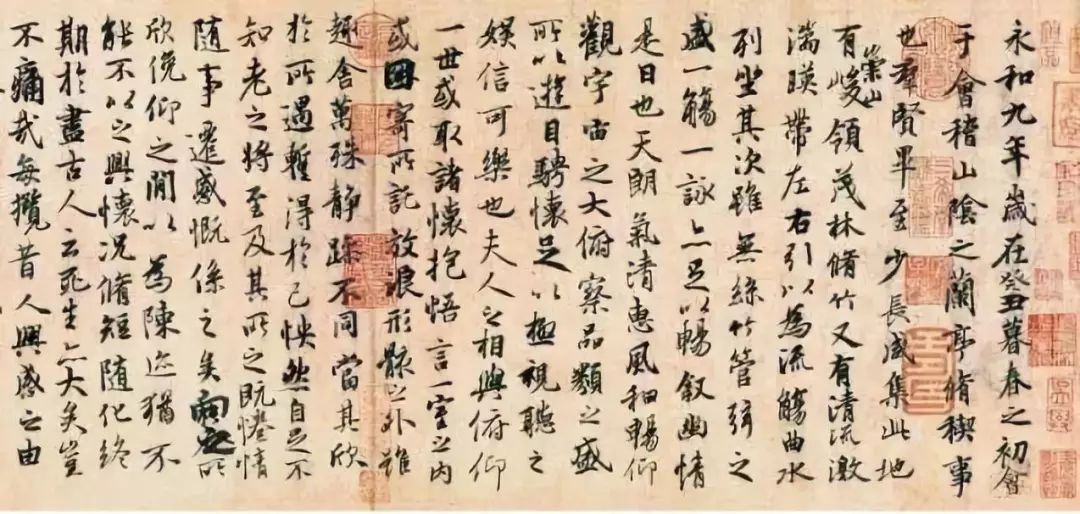 永和九年歲在癸丑暮春之初會
于會稽山陰之蘭亭脩稧事
也羣賢畢至少長咸集此地
有崇山峻領茂林脩竹又有清流激
湍暎帶左右引以為流觴曲水
列坐其次雖無絲竹管弦之
盛一觴一詠亦足以暢叙幽情
是日也天朗氣清惠風和暢仰
觀宇宙之大俯察品類之盛
所以遊目騁懷足以極視聽之
娛信可樂也夫人之相與俯仰
一世或取諸懷抱悟言一室之內
或因寄所託放浪形骸之外雖
趣舍萬殊静躁不同當其欣
於所遇暫得於己怏然自足不
知老之將至及其所之既惓情
隨事遷感慨係之矣向之所
欣俛仰之閒以為陳迹猶不
能不以之興懷況脩短隨化終
期於盡古人云死生亦大矣豈
不痛哉每攬昔人興感之由